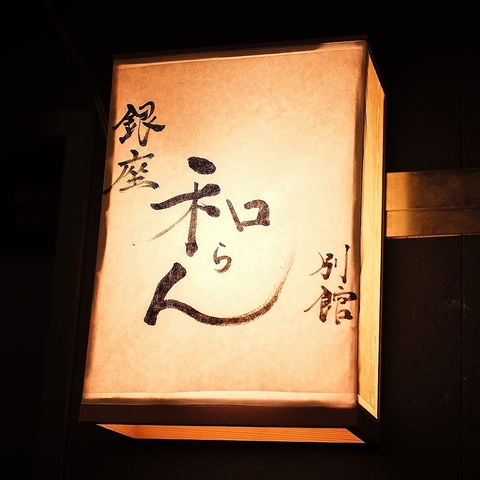 銀座
和らん
別館